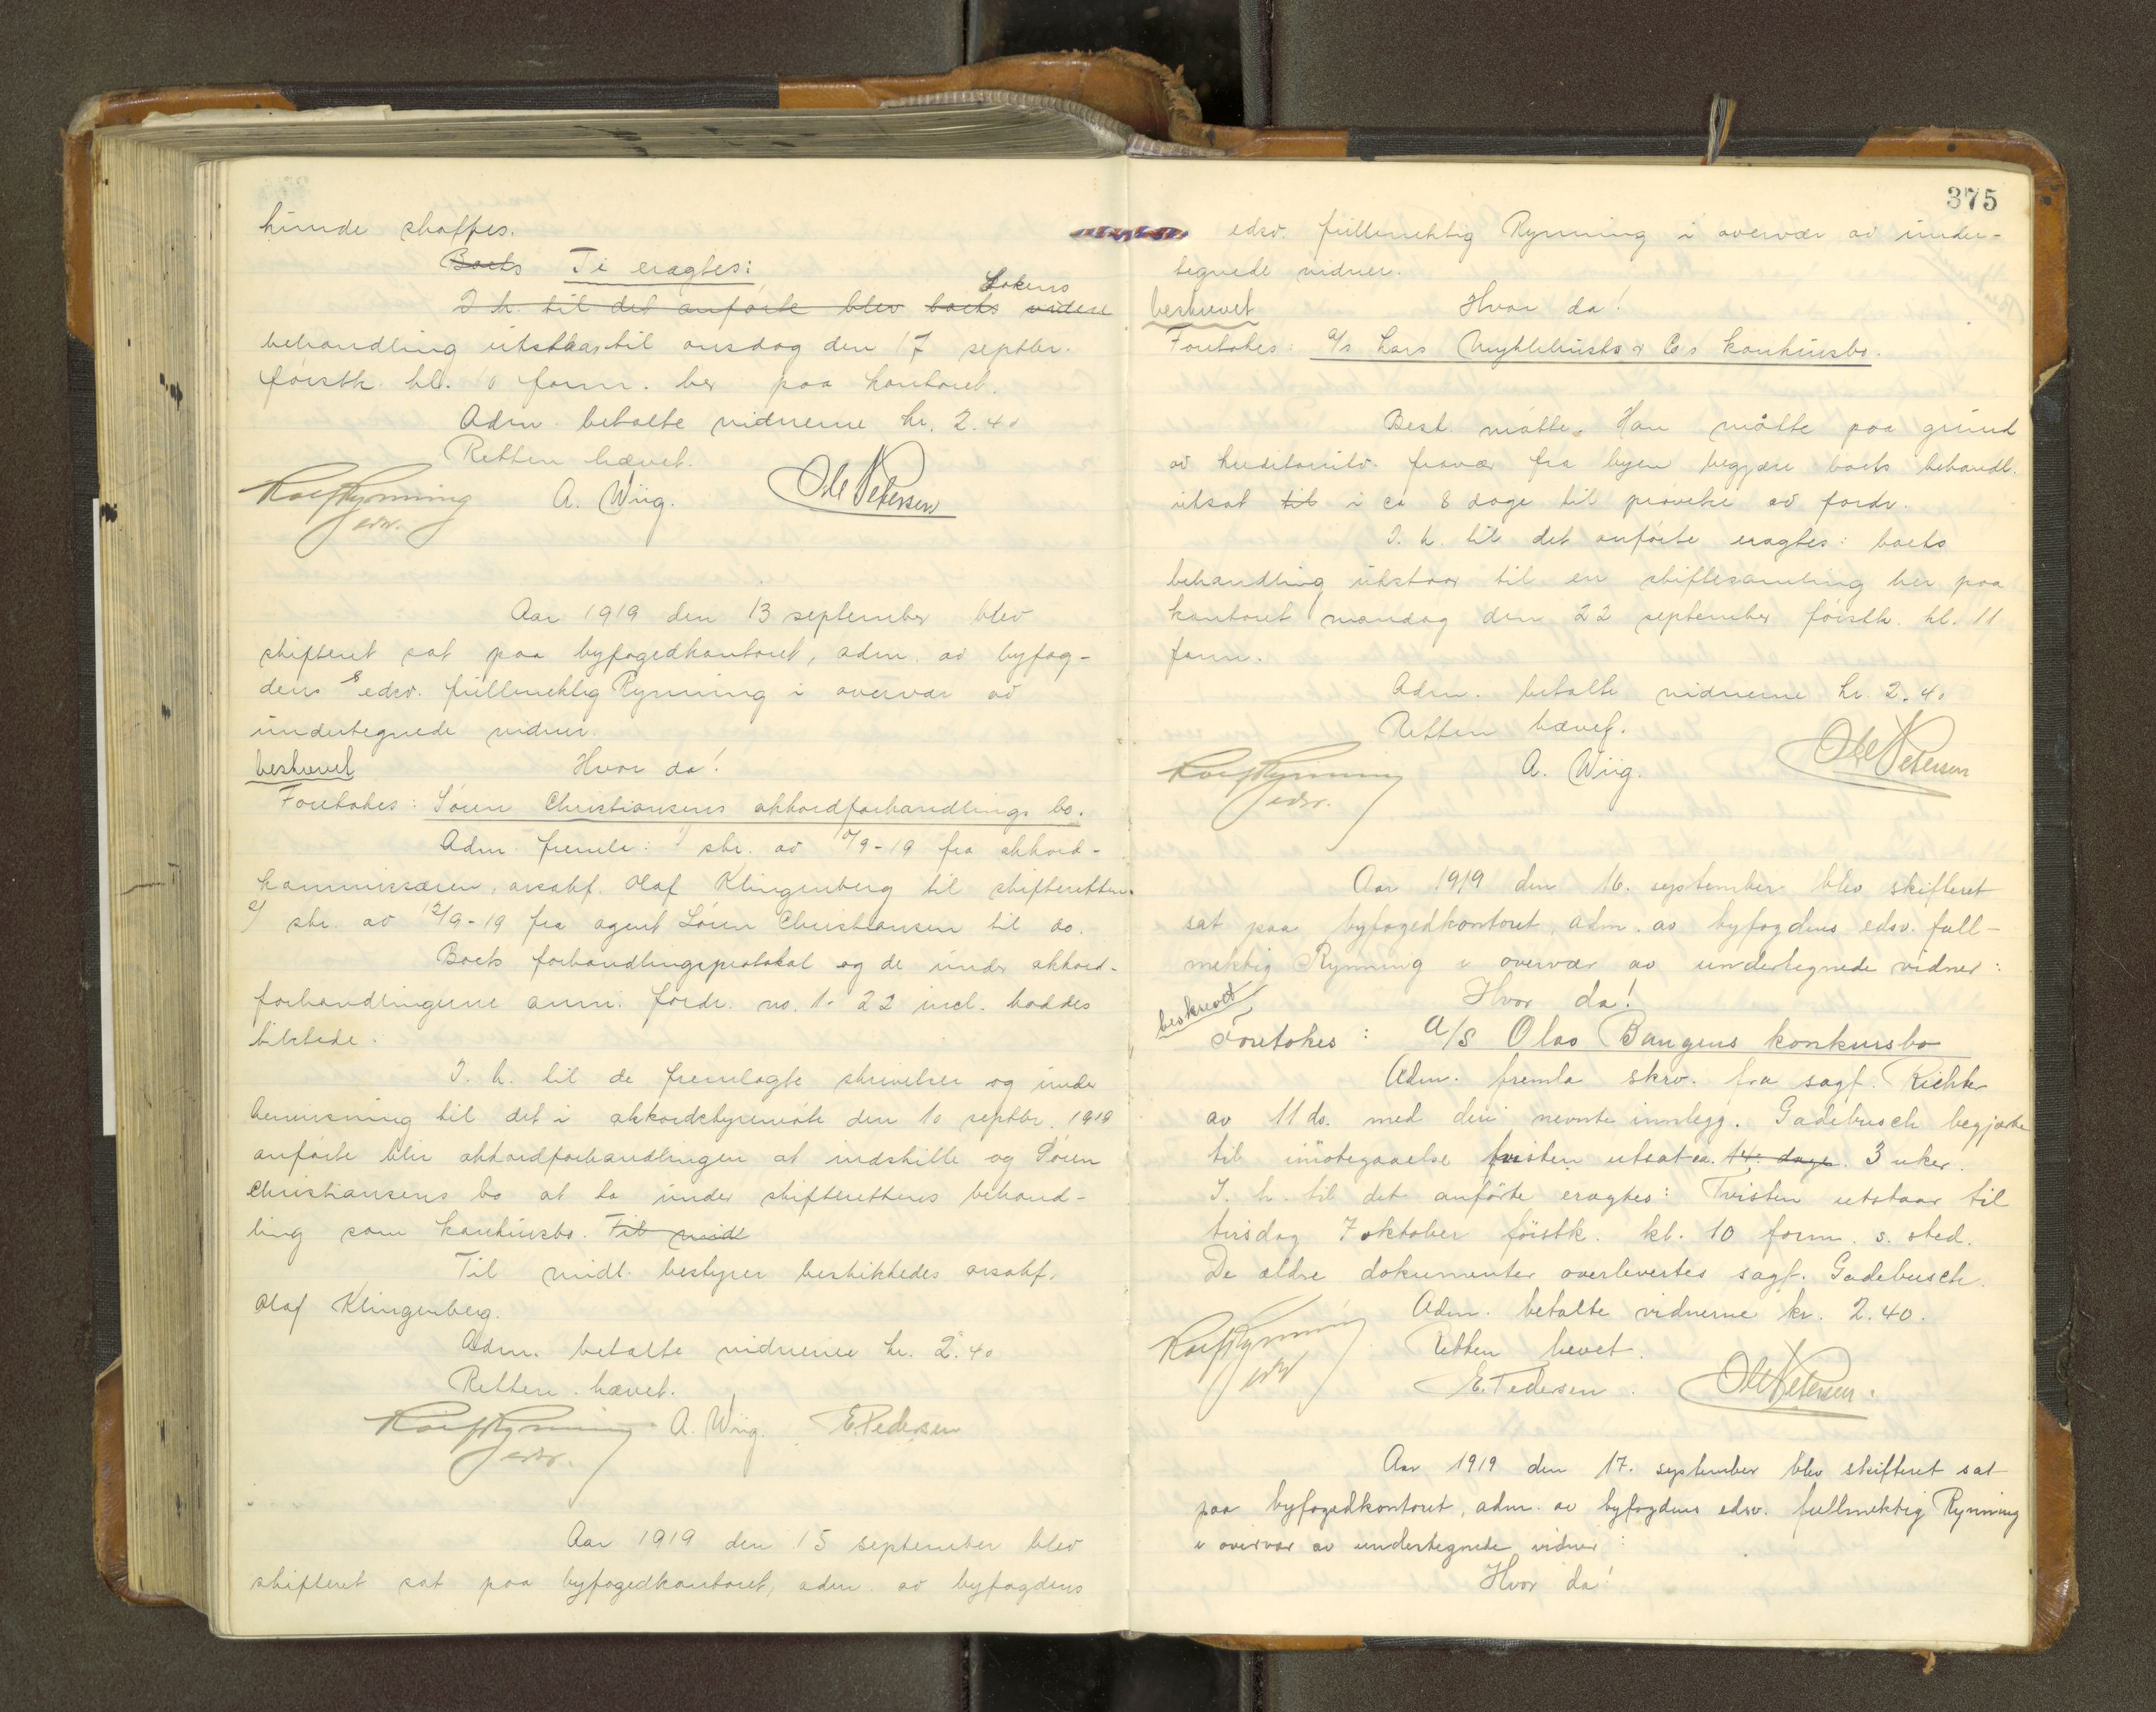 kunde skaffes.
Boets Ti eragtes:
I h. til det anförte blev boets videre Sakens
behandling utstaar til onsdag den 17 septbr.
förstk. kl. 10 form. her paa kontoret.
Adm. betalte vidnerne kr. 2.40
Retten hævet.
Rolf Rynning A. Wiig. Ole Petersen
edsv.
Aar 1919 den 13 september blev
skifteret sat paa byfogedkontoret, adm. av byfog-
dens edsv. fullmektig Rynning i overvær av
undertegnede vidner.
beskrevet Hvor da!
Foretokes: Sören Christiansens akkordforhandlings bo.
Adm. fremla: 1/ skr. av /9-19 fra akkord-
kommissæren, orsakf. Olaf Klingenberg til skifteretten.
2/ skr. av 12/9-19 fra agent Sören Christiansen til do.
Boets forhandlingsprotokol og de under akkord-
forhandlingerne anm. fordr. no. 1-22 incl. haddes
tilstede.
I. h. til de fremlagte skrivelser og under
henvisning til det i akkordstyremöte den 10 septbr. 1919
anförte blir akkordforhandlingen at indstille og Sören
Christiansens bo at ta under skifterettens behand-
ling som konkursbo. Til midl
Til midl. bestyrer beskikkedes orsakf.
Olaf Klingenberg.
Adm. betalte vidnerne kr. 2.40
Retten hævet.
Rolf Rynning A. Wiig. E. Pedersen
edsv.
Aar 1919 den 15 september blev
skifteret sat paa byfogedkontoret, adm. av byfogdens
375
edsv. fullmektig Rynning i overvær av under-
tegnede vidner.
beskrevet Hvor da!
Foretokes: A/s Lars Myklebusts & Co s konkursbo.
Best. mötte. Han måtte paa grund
av kreditorutv. fravær fra byen begjære boets behandl.
utsat til i ca 8 dage til prövelse av fordr.
I. h. til det anförte eragtes: boets
behandling utstaar til en skiftesamling her paa
kontoret mandag den 22 september förstk. kl. 11
form.
Adm. betalte vidnerne kr. 2.40
Retten hævet.
Rolf Rynning A. Wiig. Ole Petersen
edsv.
Aar 1919 den 16. september blev skifteret
sat paa byfogedkontoret, adm. av byfogdens edsv. full-
mektig Rynning i overvær av undertegnede vidner:
beskrevet Hvor da!
Foretokes: A/S Olas Baugens konkursbo
Adm. fremla skrv. fra sagf. Richter
av 11 ds. med deri nevnte innlegg. Gadebusch begjærte
til imötegaaelse tvisten utsat ca. 14. dage. 3 uker.
I. h. til det anförte eragtes: Tvisten utstaar til
tirsdag 7 oktober förstk. kl. 10 form. s. sted.
De ældre dokumenter overlevertes sagf. Gadebusch.
Adm. betalte vidnerne kr. 2.40.
Retten hevet.
Rolf Rynning E. Pedersen. Ole Petersen.
edsv
Aar 1919 den 17. september blev skifteret sat
paa byfogedkontoret, adm. av byfogdens edsv. fullmektig Rynning
i overvær av undertegnede vidner:
Hvor da!